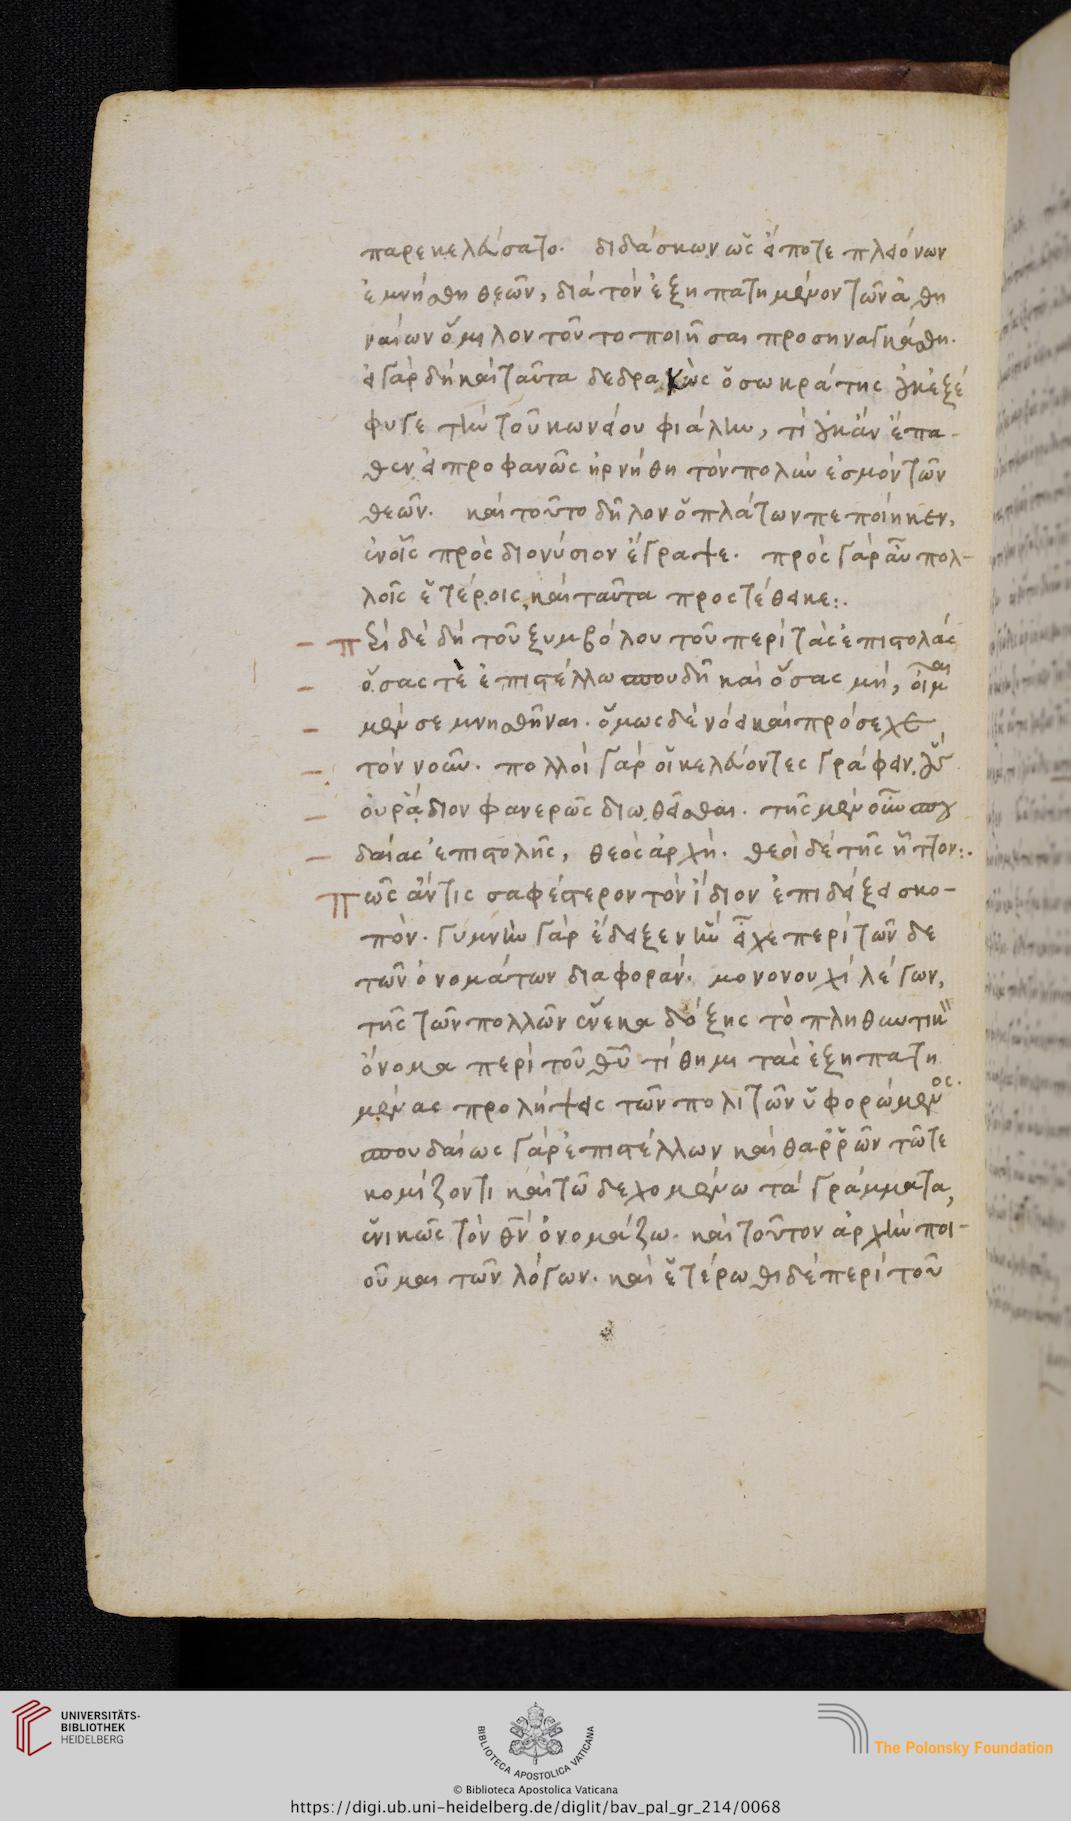 παρεκελεύσατο. διδάσκων ὡς εἴποτε πλειόνων
ἐμνήσθη θεῶν, διὰ τὸν ἐξηπατημένον τῶν ἀθη
ναίων ὅμιλον τοῦτο ποιῆσαι προσηναγκάσθη.
εἰ γὰρ δὴ καὶ ταῦτα δεδρακὼς ὁ σωκράτης οὐκ ἐξέ
φυγε τὴν τοῦ κωνείου φιάλην, τί οὐκ ἂν ἔπα-
θεν εἰ προφανῶς ἠρνήθη τὸν πολὺν ἑσμὸν τῶν
θεῶν. καὶ τοῦτο δῆλον ὁ πλάτων πεποίηκεν,
ἐν οἷς πρὸς διονύσιον ἔγραψε. πρὸς γὰρ αὖ πολ-
λοῖς ἑτέροις, καὶ ταῦτα προστέθεικε:.
περὶ δὲ δὴ τοῦ ξυμβόλου τοῦ περὶ τὰς ἐπιστολὰς
ὅσας τὲ ἐπιστέλλω σπουδῇ καὶ ὅσας μή, οἶμαι
μέν σε μνησθῆναι. ὅμως δὲ νόει καὶ πρόσεχε
τὸν νοῦν. πολλοὶ γὰρ οἱ κελεύοντες γράφειν, οὓς
οὐ ῥᾴδιον φανερῶς διωθεῖσθαι. τῆς μὲν οὖν σπου
δαίας ἐπιστολῆς, θεὸς ἀρχή. θεοὶ δὲ τῆς ἧττον:.
πῶς ἄν τις σαφέστερον τὸν ἴδιον ἐπιδείξει σκο-
πόν. γυμνὴν γὰρ ἔδειξεν ἣν εἶχε περὶ τῶνδε
τῶν ὀνομάτων διαφοράν. μονονουχὶ λέγων,
τῆς τῶν πολλῶν ἕνεκα δόξης τὸ πληθυντικὸν
ὄνομα περὶ τοῦ θυ τίθημι τὰς ἐξηπατη
μένας προλήψεις τῶν πολιτῶν ὑφορώμενος.
σπουδαίως γὰρ ἐπιστέλλων καὶ θαῤῥῶν τῶ τε
κομίζοντι καὶ τῶ δεχομένω τὰ γράμματα,
ἑνικῶς τὸν θν ὀνομάζω. καὶ τοῦτον ἀρχὴν ποι-
οῦμαι τῶν λόγων. καὶ ἑτέρωθι δὲ περὶ τοῦ
UNIVERSITÄTS-
BIBLIOTHEK
HEIDELBERG
BIBLIOTECA APOSTOLICA VATICANA
The Polonsky Foundation
© Biblioteca Apostolica Vaticana
https://digi.ub.uni-heidelberg.de/diglit/bav_pal_gr_214/0068